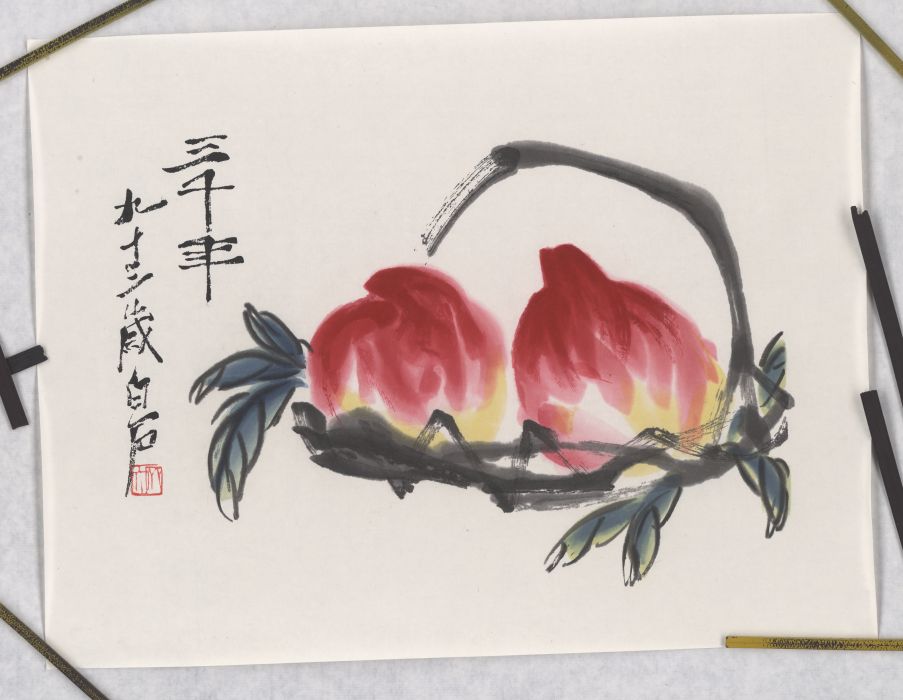 三千年
九十三歲白石